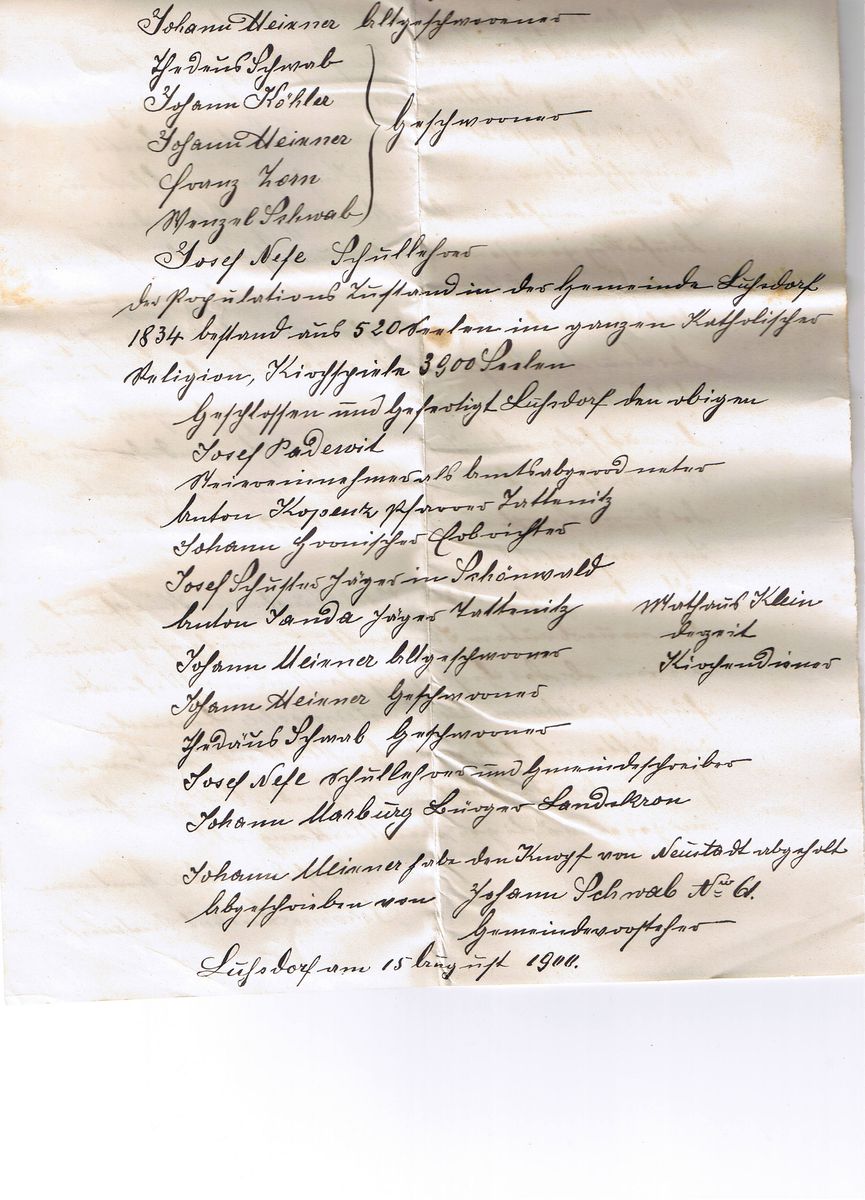 Johann Meixner Altgeschworener
Thedeus Schwab
Johann Köhler
Johann Meixner
Geschworner
Franz Zorn
Wenzel Schwab
Josef Nese Schullehrer
Der Populations Zustand in der Gemeinde Luhsdorf
1834 bestand aus 520 Seelen im ganzen Katholischer
Religion, Kirchspiele 3900 Seelen
Geschlossen und Gefertigt Luhsdorf den obigen
Josef Padewit
Steiereinnehmer als Amtsabgeordneter
Anton Kopenz Pfarrer Tattenitz
Johann Hronischer Erbrichter
Josef Schuster Jäger in Schönwald
Anton Janda Jäger Tattenitz
Mathaus Klein
derzeit
Kirchendiener
Johann Meixner Altgeschworner
Johann Meixner Geschworner
Thedäus Schwab Geschworner
Josef Nese Schullehrer und Gmeindeschreiber
Johann Marburg Bürger Landskron
Johann Meixner habe den Knopf von Neustadt abgeholt
Abgeschrieben von Johann Schwab Nro 61.
Gemeindevorsteher
Luhsdorf am 15 August 1900.